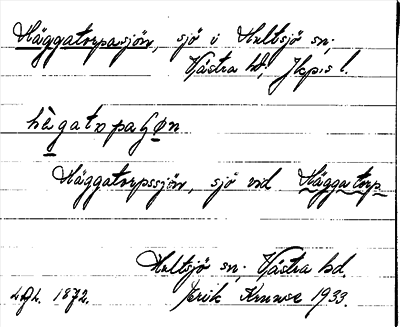 Häggatorpasjön, sjö i Hultsjö sn,
Västra hd, Jkpgs l.
hägatɷpaʃøn
Häggatorpssjön, sjö vid Häggatorp
Hultsjö sn, Västra hd
1872. Erik Kruuse 1933.